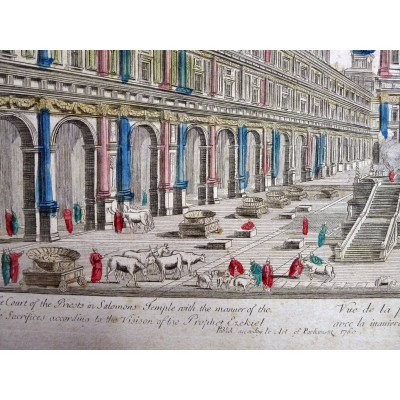 Court of the Priests in Salomons Temple with the manner of the
Sacrifices according to the Vision of the Prophet Ezekiel
Vue de la
avec la maniere
Publ. according to Act of Parliament 1760